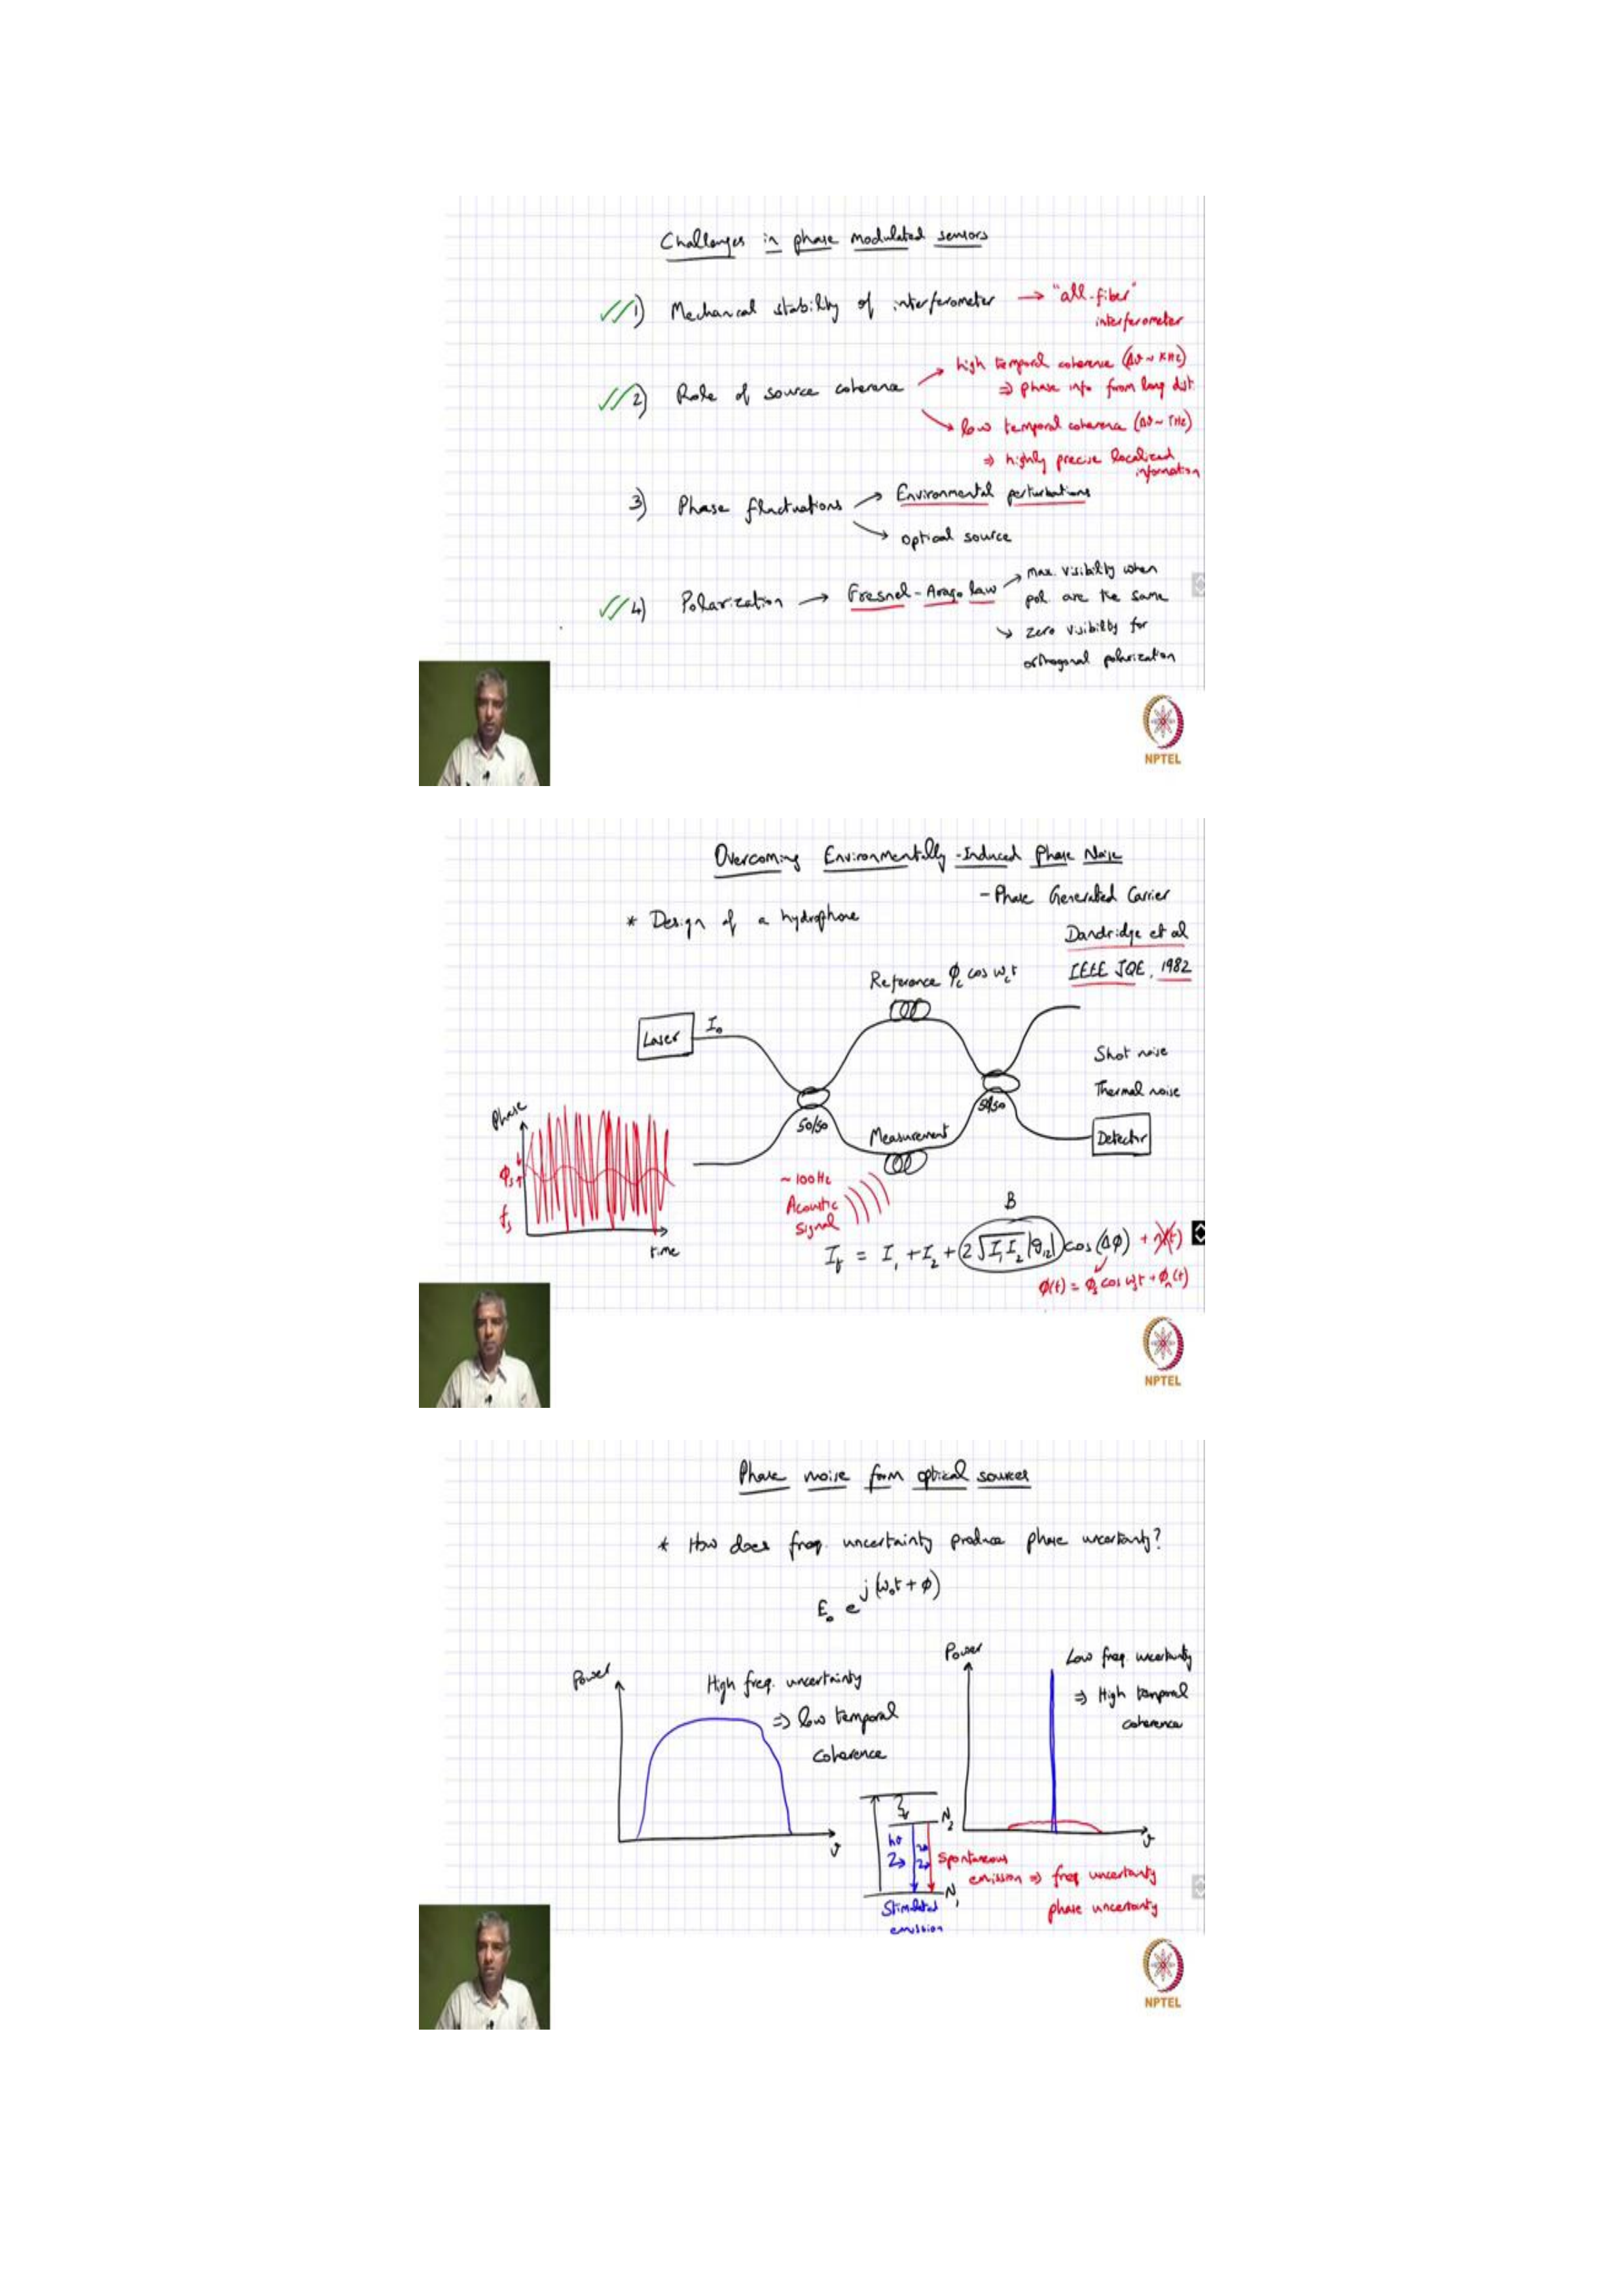 Challenges in phase modulated sensors
1) Mechancal stability of interferometer → "all-fiber"
interferometer
2) Role of source coherence
high temporal coherence (Δν ~ KHz)
⇒ phase info from long dist.
low temporal coherence (Δν ~ THz)
⇒ highly precise localized
information
3) Phase fluctuations → Environmental perturbations
→ optical source
4) Polarization → Fresnel-Arago law → max. visibility when
pol. are the same
↘ zero visibility for
orthogonal polarization
NPTEL
Overcoming Environmentally-Induced Phase Noise
- Phase Generated Carrier
* Design of a hydrophone
Dandridge et al
IEEE JQE, 1982
Reference ϕc cos ωct
Laser
I₀
Shot noise
Thermal noise
50/50
50/50
Detector
Measurement
Phase
ϕs
fs
time
~ 100 Hz
Acoustic
signal
B
It = I₁ + I₂ + 2√I₁I₂ |g₁₂| cos(Δϕ) + n(t)
ϕ(t) = ϕs cos ωst + ϕn(t)
NPTEL
Phase noise from optical sources
* How does freq. uncertainty produce phase uncertainty?
E₀ e^j(ω₀t + ϕ)
Power
High freq. uncertainty
⇒ low temporal
coherence
ν
Power
Low freq. uncertainty
⇒ High temporal
coherence
ν
N₂
hν
N₁
Stimulated
emission
Spontaneous
emission ⇒ freq uncertainty
phase uncertainty
NPTEL